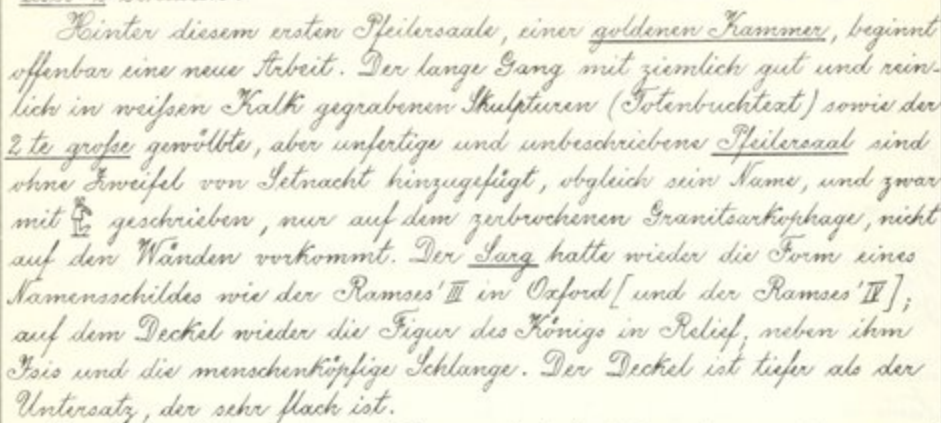 Hinter diesem ersten Pfeilersaale, einer goldenen Kammer, beginnt
offenbar eine neue Arbeit. Der lange Gang mit ziemlich gut und rein-
lich in weißen Kalk gegrabenen Skulpturen (Totenbuchtext) sowie der
2te große gewölbte, aber unfertige und unbeschriebene Pfeilersaal sind
ohne Zweifel von Setnacht hinzugefügt, obgleich sein Name, und zwar
mit geschrieben, nur auf dem zerbrochenen Granitsarkophage, nicht
auf den Wänden vorkommt. Der Sarg hatte wieder die Form eines
Namensschildes wie der Ramses' III in Oxford [und der Ramses' IV];
auf dem Deckel wieder die Figur des Königs in Relief, neben ihm
Isis und die menschenköpfige Schlange. Der Deckel ist tiefer als der
Untersatz, der sehr flach ist.